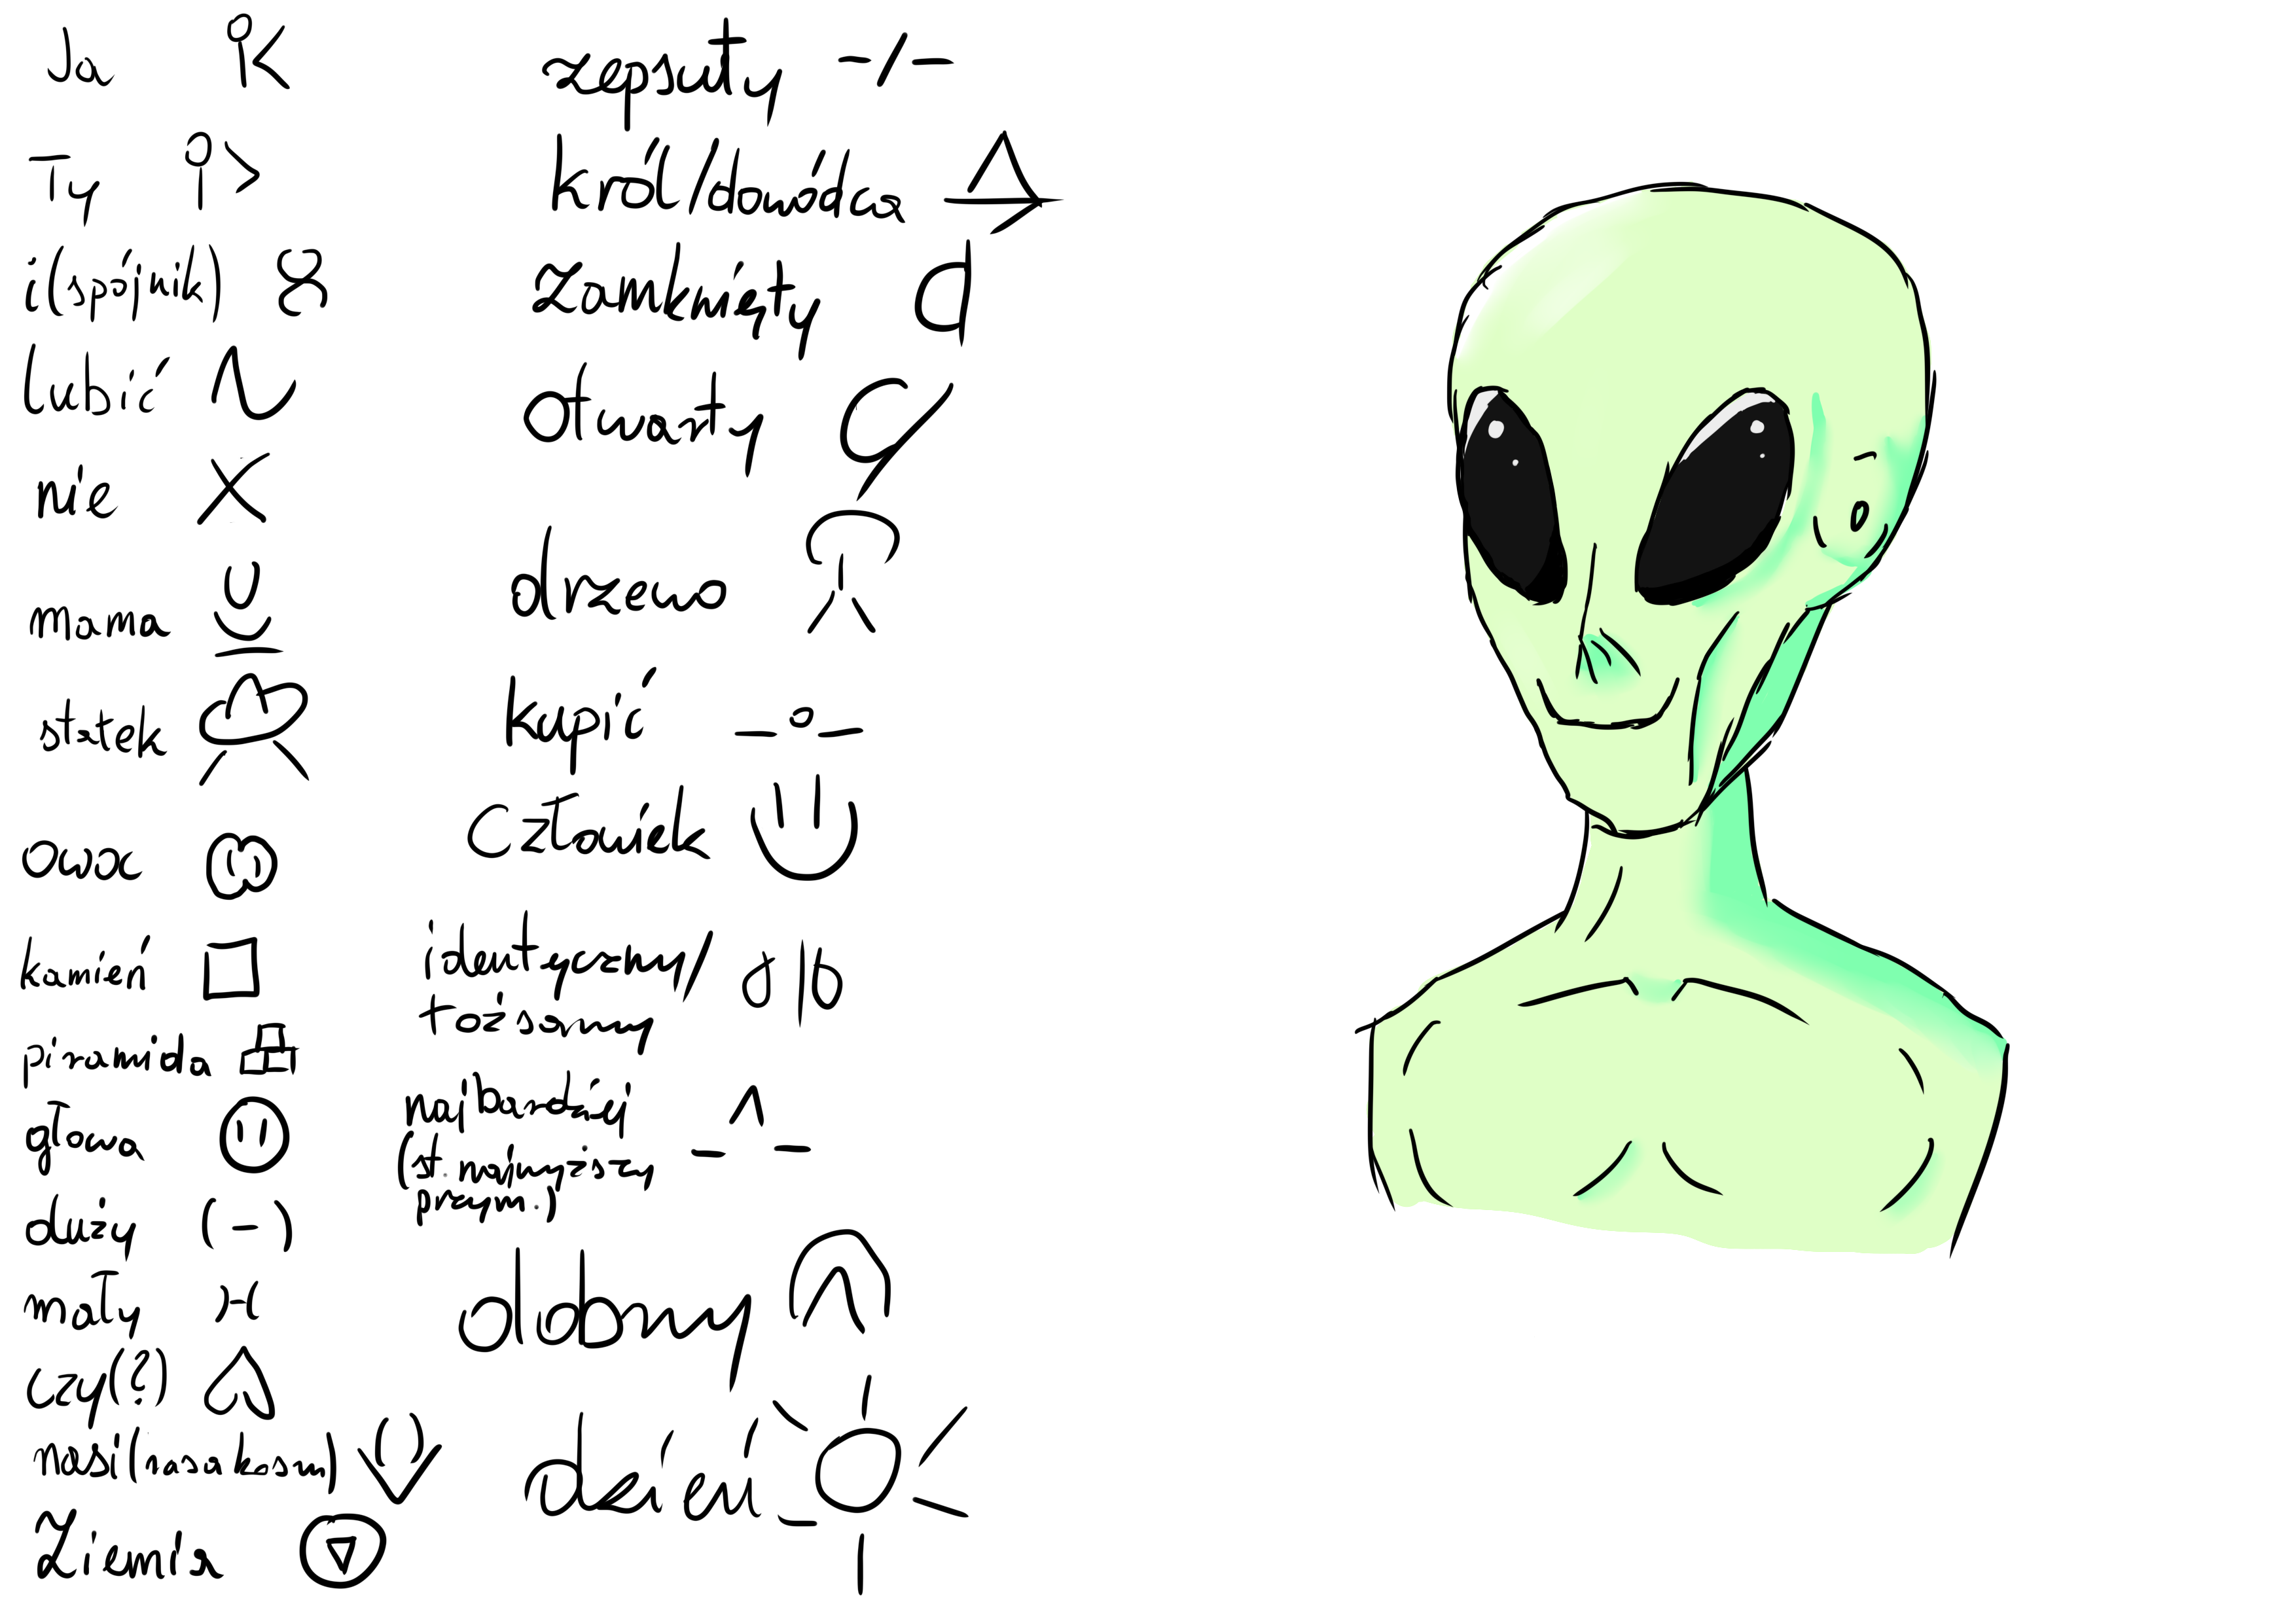 Ja
Ty
i (spójnik)
lubić
nie
mama
statek
owoc
kamień
piramida
głowa
duży (-)
mały )-(
czy (?)
nasi (rasa kosm)
Ziemia
zepsuty -/-
król/dowódca
zamknięty
otwarty
drzewo
kupić
Człowiek
identyczny/
tożsamy
najbardziej
(st. najwyższy
przym.)
dobry
dzień